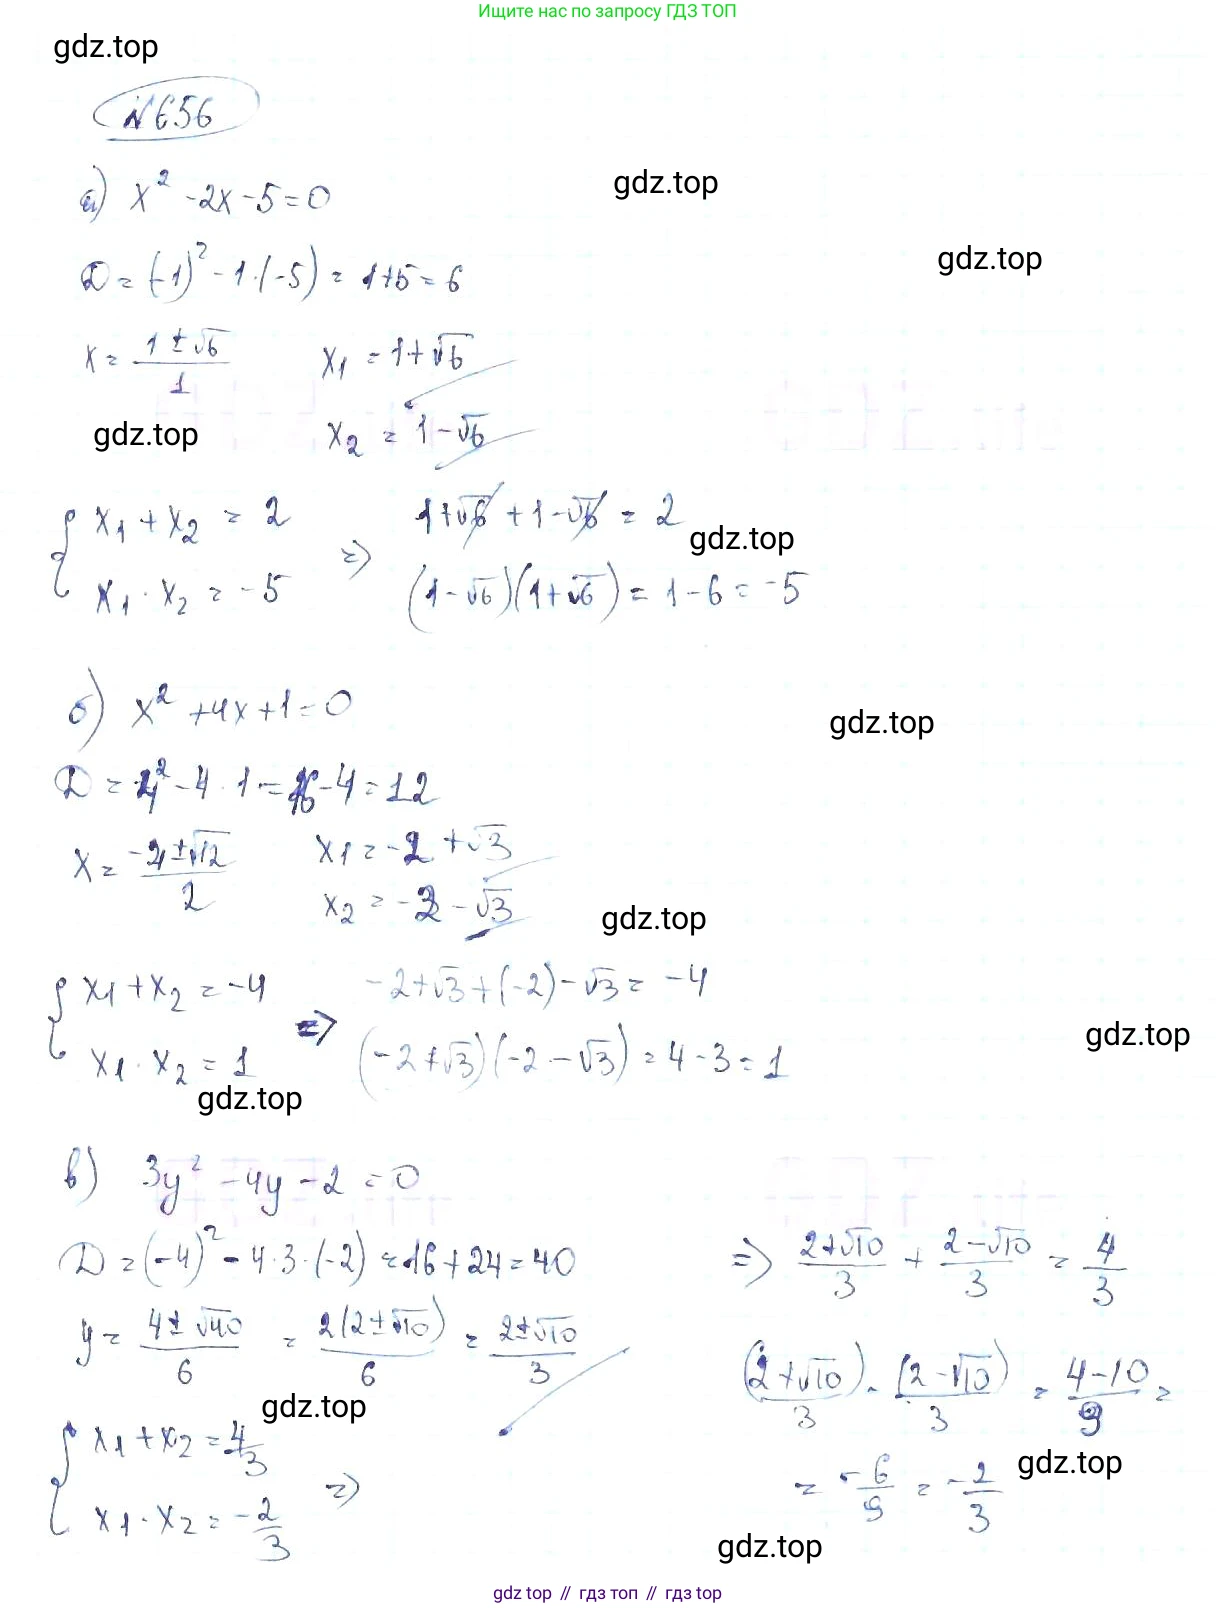 Ищите нас по запросу ГДЗ ТОП
gdz.top
№656
а) x² - 2x - 5 = 0
gdz.top
gdz.top
D = (-1)² - 1·(-5) = 1+5 = 6
x = (1 ± √6)/1   x₁ = 1+√6
gdz.top   x₂ = 1-√6
{ x₁ + x₂ = 2   =>   1+√6 + 1-√6 = 2
gdz.top
x₁ · x₂ = -5   (1-√6)(1+√6) = 1-6 = -5
б) x² + 4x + 1 = 0
gdz.top
D = 4² - 4·1 = 16 - 4 = 12
x = (-4 ± √12)/2   x₁ = -2 + √3
x₂ = -2 - √3
gdz.top
{ x₁ + x₂ = -4   =>   -2+√3+(-2)-√3 = -4
x₁ · x₂ = 1   (-2+√3)(-2-√3) = 4-3 = 1
gdz.top
gdz.top
в) 3y² - 4y - 2 = 0
D = (-4)² - 4·3·(-2) = 16+24 = 40
y = (4 ± √40)/6 = 2(2±√10)/6 = (2±√10)/3
gdz.top
{ x₁ + x₂ = 4/3
x₁ · x₂ = -2/3   =>
=> (2+√10)/3 + (2-√10)/3 = 4/3
(2+√10)/3 · (2-√10)/3 = (4-10)/9 =
= -6/9 = -2/3
gdz.top
gdz.top
gdz.top // гдз топ // гдз top